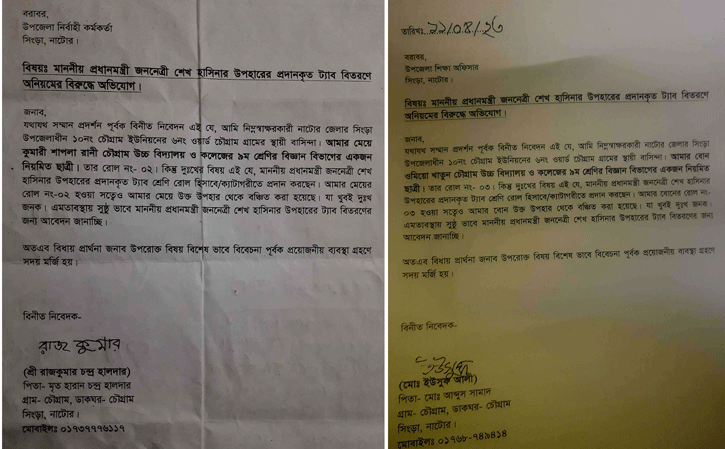 বরাবর,
উপজেলা নির্বাহী কর্মকর্তা
সিংড়া, নাটোর।
বিষয়ঃ মাননীয় প্রধানমন্ত্রী জননেত্রী শেখ হাসিনার উপহারের প্রদানকৃত ট্যাব বিতরণে
অনিয়মের বিরুদ্ধে অভিযোগ।
জনাব,
যথাযথ সম্মান প্রদর্শন পূর্বক বিনীত নিবেদন এই যে, আমি নিম্নস্বাক্ষরকারী নাটোর জেলার সিংড়া
উপজেলাধীন ১০নং চৌগ্রাম ইউনিয়নের ৬নং ওয়ার্ড চৌগ্রাম গ্রামের স্থায়ী বাসিন্দা। আমার মেয়ে
কুমারী শাপলা রানী চৌগ্রাম উচ্চ বিদ্যালয় ও কলেজের ৯ম শ্রেণির বিজ্ঞান বিভাগের একজন
নিয়মিত ছাত্রী। তার রোল নং- ০২। কিন্তু দুঃখের বিষয় এই যে, মাননীয় প্রধানমন্ত্রী জননেত্রী শেখ
হাসিনার উপহারের প্রদানকৃত ট্যাব শ্রেণি রোল হিসাবে/ক্যাটাগরীতে প্রদান করছেন। আমার মেয়ের
রোল নং-০২ হওয়া সত্বেও আমার মেয়ে উক্ত উপহার থেকে বঞ্চিত করা হয়েছে। যা খুবই দুঃখ
জনক। এমতাবস্থায় সুষ্ঠু ভাবে মাননীয় প্রধানমন্ত্রী জননেত্রী শেখ হাসিনার উপহারের ট্যাব বিতরণের
জন্য আবেদন জানাচ্ছি।
অতএব বিধায় প্রার্থনা জনাব উপরোক্ত বিষয় বিশেষ ভাবে বিবেচনা পূর্বক প্রয়োজনীয় ব্যবস্থা গ্রহণে
সদয় মর্জি হয়।
বিনীত নিবেদক-
রাজ কুমার
(শ্রী রাজকুমার চন্দ্র হালদার)
পিতা- মৃত হারান চন্দ্র হালদার
গ্রাম- চৌগ্রাম, ডাকঘর- চৌগ্রাম
সিংড়া, নাটোর।
মোবাইলঃ ০১৭৩৭৭৭৬১১৭
তারিখঃ
বরাবর,
উপজেলা শিক্ষা অফিসার
সিংড়া, নাটোর।
বিষয়ঃ মাননীয় প্রধানমন্ত্রী জননেত্রী শেখ হাসিনার উপহারের প্রদানকৃত ট্যাব বিতরণে
অনিয়মের বিরুদ্ধে অভিযোগ।
জনাব,
যথাযথ সম্মান প্রদর্শন পূর্বক বিনীত নিবেদন এই যে, আমি নিম্নস্বাক্ষরকারী নাটোর জেলার সিংড়া
উপজেলাধীন ১০নং চৌগ্রাম ইউনিয়নের ৬নং ওয়ার্ড চৌগ্রাম গ্রামের স্থায়ী বাসিন্দা। আমার বোন
খাতুন চৌগ্রাম উচ্চ বিদ্যালয় ও কলেজের ৯ম শ্রেণির বিজ্ঞান বিভাগের একজন নিয়মিত
ছাত্রী। তার রোল নং- ০৩। কিন্তু দুঃখের বিষয় এই যে, মাননীয় প্রধানমন্ত্রী জননেত্রী শেখ হাসিনার
উপহারের প্রদানকৃত ট্যাব শ্রেণি রোল হিসাবে/ক্যাটাগরীতে প্রদান করছেন। আমার বোনের রোল নং-
০৩ হওয়া সত্বেও আমার বোন উক্ত উপহার থেকে বঞ্চিত করা হয়েছে। যা খুবই দুঃখ জনক।
এমতাবস্থায় সুষ্ঠু ভাবে মাননীয় প্রধানমন্ত্রী জননেত্রী শেখ হাসিনার উপহারের ট্যাব বিতরণের জন্য
আবেদন জানাচ্ছি।
অতএব বিধায় প্রার্থনা জনাব উপরোক্ত বিষয় বিশেষ ভাবে বিবেচনা পূর্বক প্রয়োজনীয় ব্যবস্থা গ্রহণে
সদয় মর্জি হয়।
বিনীত নিবেদক-
(মোঃ ইউসুফ আলী)
পিতা- মোঃ আব্দুস সামাদ
গ্রাম- চৌগ্রাম, ডাকঘর- চৌগ্রাম
সিংড়া, নাটোর।
মোবাইলঃ ০১৭৬৮-৭৪৯৪১৪